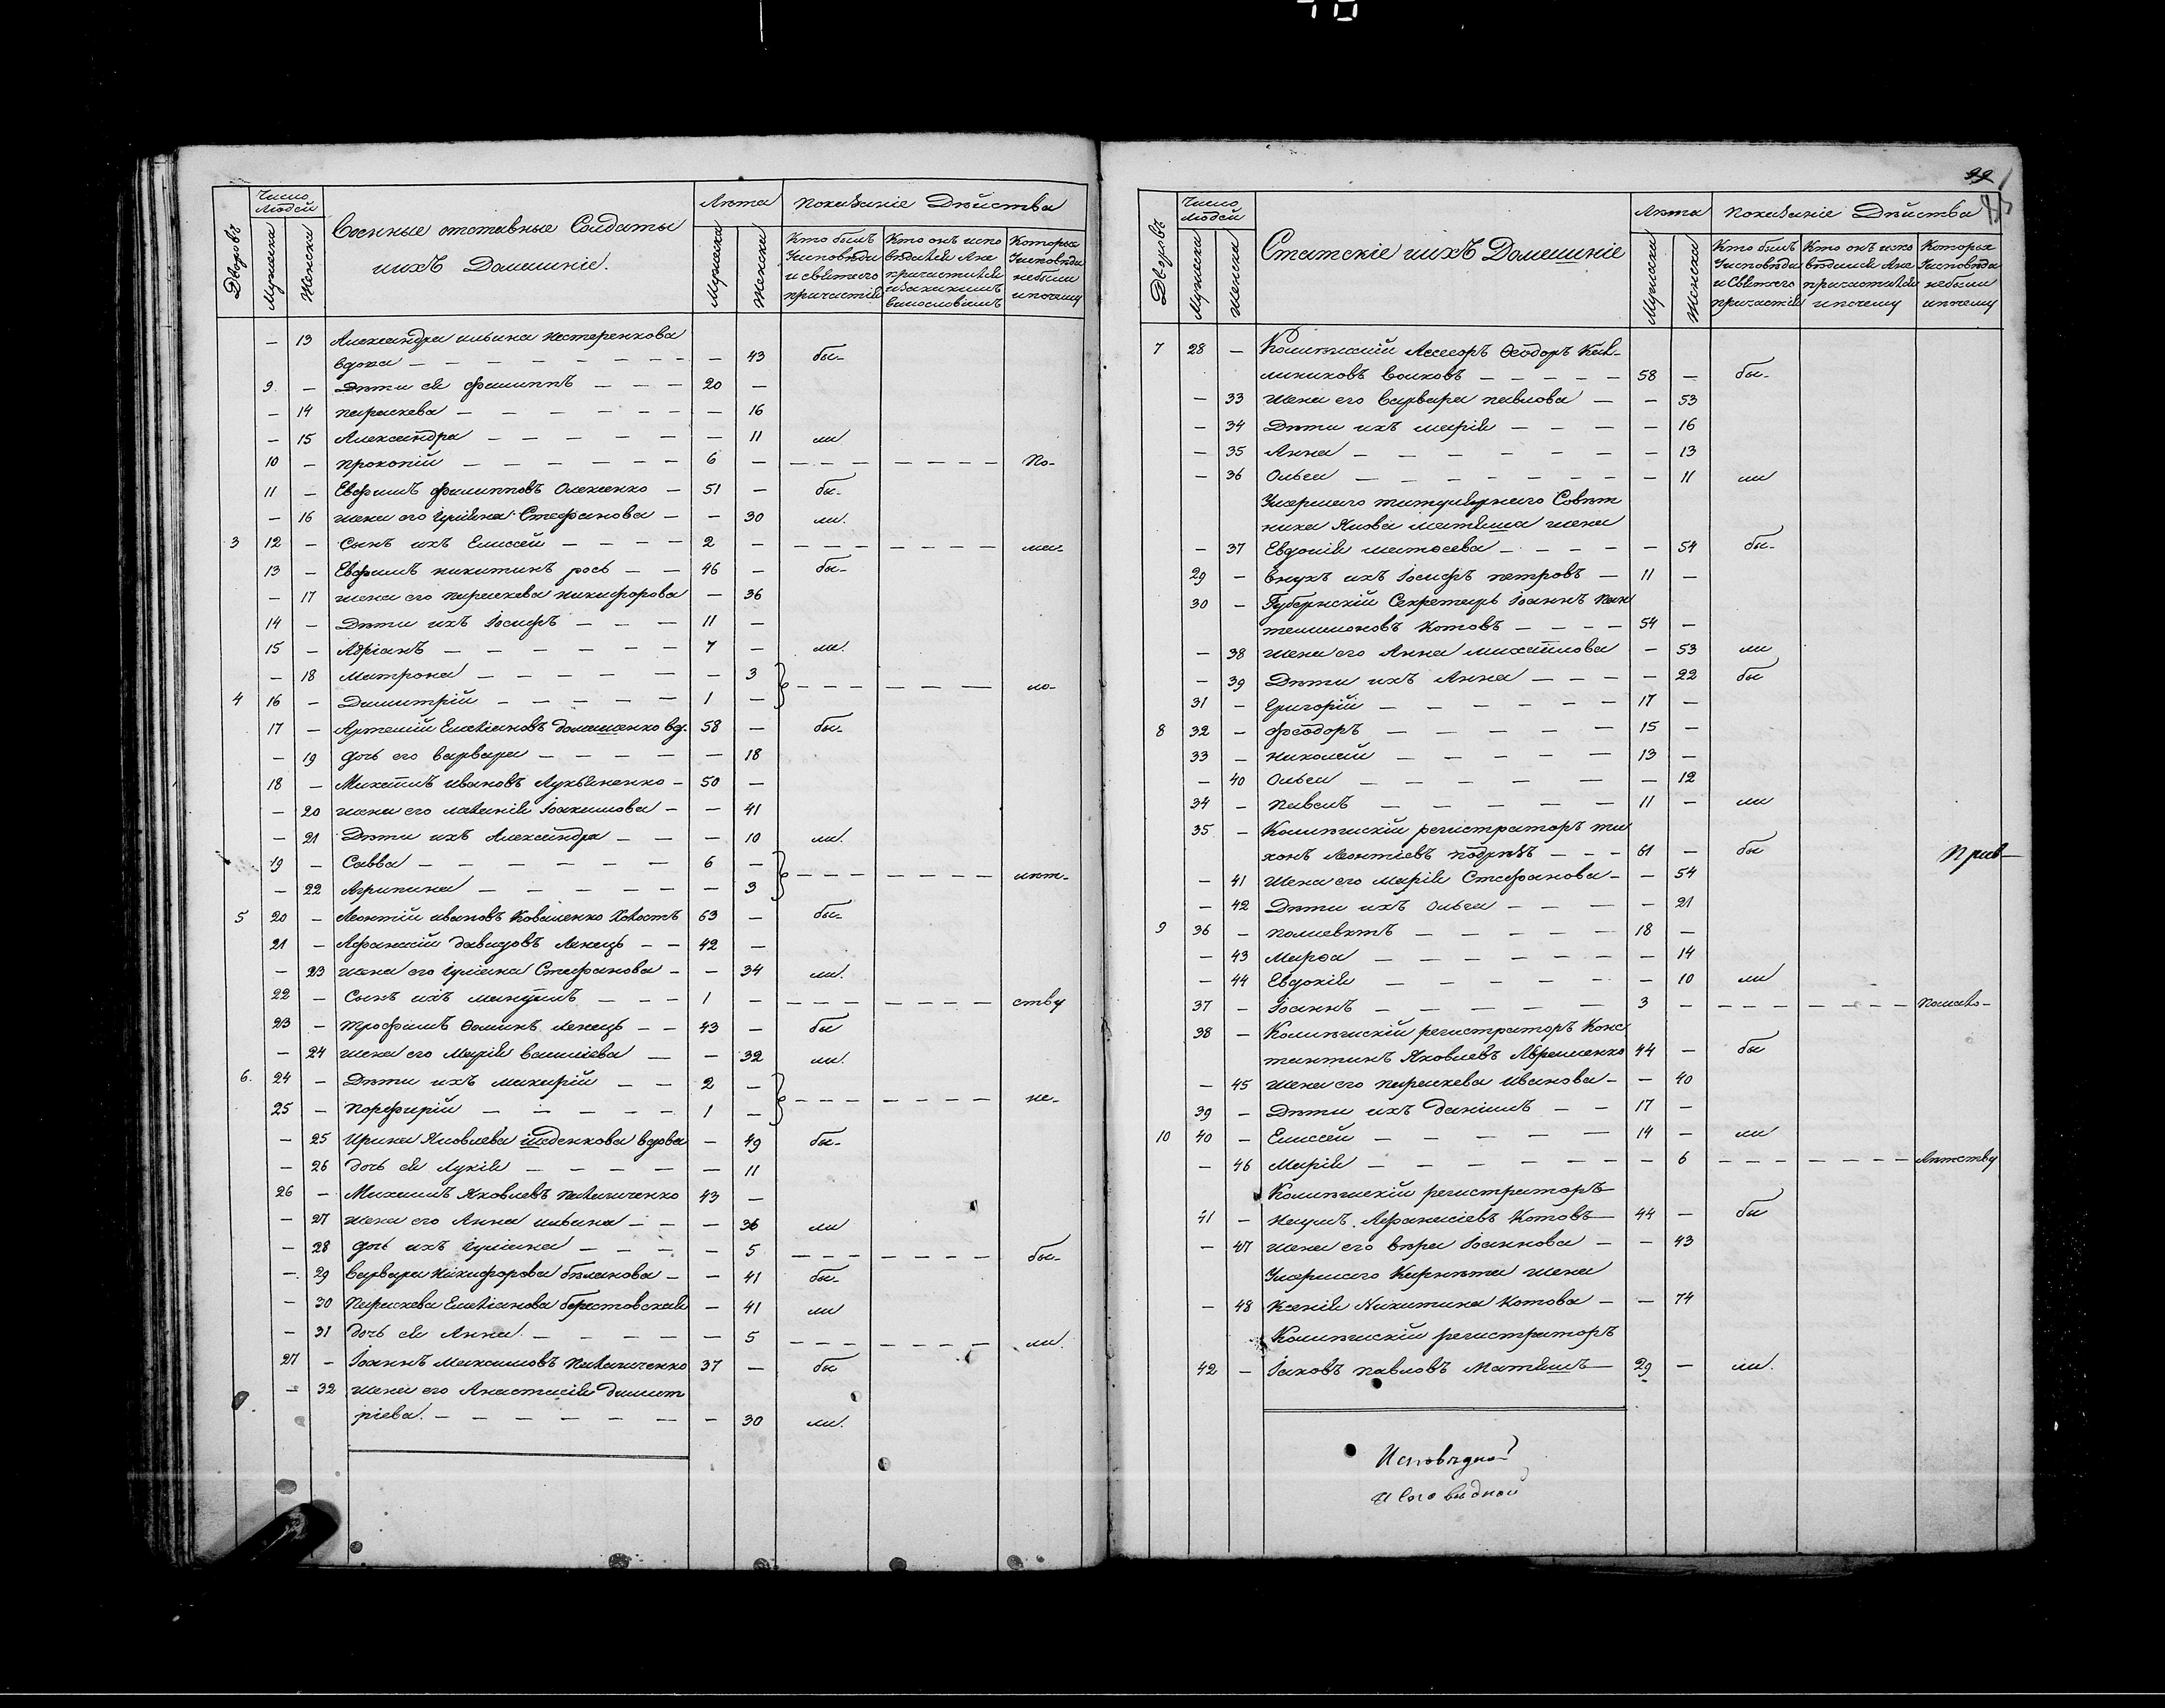 Число людей
Дворовъ
Мужеска
Женска
Военные отставные Солдаты
ихъ Домашніе.
Лѣта
Мужеска
Женска
Показаніе Дѣйства
Кто былъ
Уисповѣди
и святаго
причастія
Кто онъ испо
вѣдался Ане
причастился
Которые
Уисповѣди
небыли
ипочему
— 13 Александра ильина нестеренкова
вдова — — 43 бы-
9. — Дѣти ея филиппъ — 20 —
— 14 параскева — — 16
— 15 Александра — — 11 ли
10 — Прокопій — 6 — — — по-
11 — Евфимъ филипповъ Олексенко — 51 — бы-
— 16 жена его Іуліяна Стефанова — — 30 ли.
3 12 — Сынъ ихъ Елиссей — 2 — — — ма-
13 — Евфимъ никитинъ рось — 46 — бы-
— 17 жена его параскева никифорова — 36
14 — Дѣти ихъ Іосифъ — 11 —
15 — Адріанъ — 7 — ли.
— 18 Матрона — — 3
4 16 — Димитрій — 1 — — — ло-
17 — Артемій Емеліановъ домашенко вд. 58 — бы-
— 19 дочь его варвара — — 18
18 — Михаилъ ивановъ Лукьяненко — 50 —
— 20 жена его меланія Іоакимова — — 41
— 21 Дѣти ихъ Александра — — 10 ли.
19 — Савва — 6 —
— 22 Агрипина — — 3 — — лѣт-
5 20 — Леонтій ивановъ Коваленко Холостъ 63 — бы-
21 — Афанасій давидовъ Ленецъ — 42 —
— 23 жена его Іуліана Стефанова — — 34 ли.
22 — Сынъ ихъ мануилъ — 1 — — — ству
23 — трофимъ Фоминъ Ленецъ — 43 — бы
— 24 жена его Марія василіева — — 32 ли.
6. 24 — Дѣти ихъ макарій — 2 —
25 — Порфирій — 1 — — — не-
— 25 Ирина Яковлева шеденкова вдова — 49 бы-
— 26 дочь ея Лукія — — 11
26 — Михаилъ Яковлевъ Пелагиченко 43 —
— 27 жена его Анна ильина — — 36 ли
— 28 дочь ихъ Іуліана — — 5 — — бы-
— 29 варвара никифорова бѣлакова — — 41 бы-
— 30 Параскева Емеліанова берестовская — 41 ли
— 31 дочь ея Анна. — — 5 — — ли.
27 — Іоаннъ Максимовъ Пелагиченко 37 — бы
— 32 жена его Анастасія димит
ріева. — — 30 ли.
Число людей
Дворовъ
Мужеска
Женска
Статскіе ихъ Домашніе
Лѣта
Мужеска
Женска
Показаніе Дѣйства
Кто былъ
Уисповѣди
и Святаго
причастія
Кто онъ испо
вѣдался Ане
причастился
ипочему
Которые
Уисповѣди
небыли
ипочему
7 28 — Колѣжскій Ассесоръ Феодоръ Кал-
линиковъ волковъ — 58 — бы-
— 33 жена его варвара павлова — — 53
— 34 Дѣти ихъ марія — — 16
— 35 Анна — — 13
— 36 Ольга — — 11 ли
Умершаго титулярнаго Совѣт
ника Якова матяша жена
— 37 Евдокія матѳеева — — 54 бы-
29 — внукъ ихъ Іосифъ петровъ — 11 —
30 — Губернскій Секретарь Іоаннъ пан
телимоновъ Котовъ — 54 —
— 38 жена его Анна михайлова — 53 ли
— 39 Дѣти ихъ Анна — — 22 бы
31 — Григорій — 17 —
8 32 — феодоръ — 15 —
33 — николай — 13 —
— 40 Ольга — — 12
34 — Павелъ — 11 — ли
35 — Колѣжскій регистраторъ ти
хонъ Леонтіевъ — 61 — бы
— 41 Жена его марія Стефанова — — 54
— 42 Дѣти ихъ Ольга — — 21
9 36 — полиевктъ — 18 —
— 43 Марѳа — — 14
— 44 Евдокія — — 10 ли
37 — Іоаннъ — 3 — — — помало-
38 — Колѣжскій регистраторъ Конс
тантинъ Яковлевъ Авраменко 44 — бы
— 45 жена его параскева иванова — — 40
39 — Дѣти ихъ даніилъ — 17 —
10 40 — Елиссей — 14 — ли
— 46 Марія — — 6 — — лѣтству
Колѣжскій регистраторъ
41 — наумъ Афанасіевъ Котовъ — 44 — бы
— 47 жена его вѣра Іоаннова — — 43
Умершаго Карнѣта жена
— 48 Ксенія Никитина Котова — — 74
Колѣжскій регистраторъ
42 — Іаковъ павловъ Матяшъ — 29 — ли.
Исповѣдной